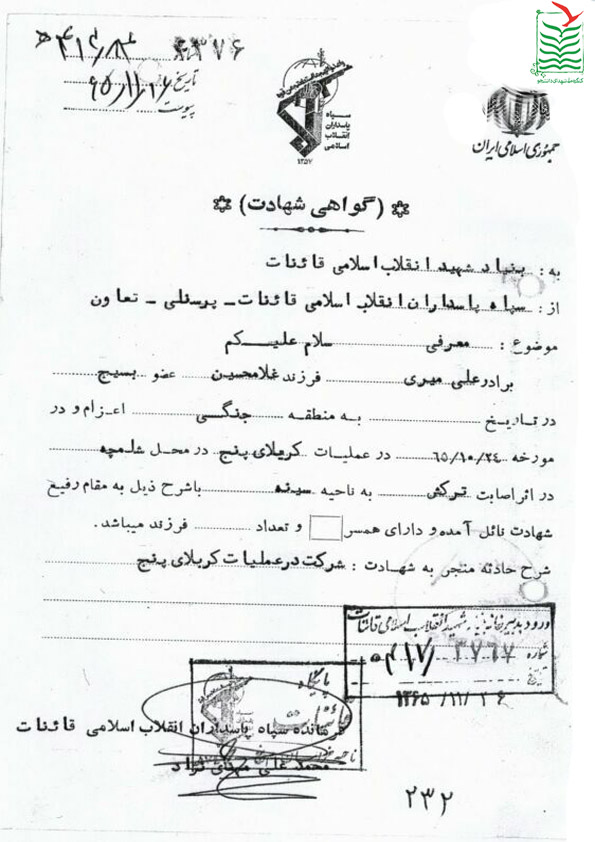 ۶۵/۱۱/۱۶
تاریخ
پیوست
سپاه
پاسداران
انقلاب
اسلامی
۱۳۵۷
جمهوری اسلامی ایران
(گواهی شهادت)
به : بنیاد شهید انقلاب اسلامی قائنات
از : سپاه پاسداران انقلاب اسلامی قائنات ـ پرسنلی ـ تعاون
موضوع : معرفی سلام علیکم
برادر علی میری فرزند غلامحسین عضو بسیج
در تاریخ به منطقه جنگی اعزام و در
مورخه ۶۵/۱۰/۲۴ در عملیات کربلای پنج در محل شلمچه
در اثر اصابت ترکش به ناحیه سینه باشرح ذیل به مقام رفیع
شهادت نائل آمده و دارای همسر و تعداد فرزند میباشد.
شرح حادثه منجر به شهادت : شرکت در عملیات کربلای پنج
ورود بدبیرخانه بنیاد شهید انقلاب اسلامی قائنات
شماره ۳۷۶۷
تاریخ
۱۳۶۵/۱۱/۲۶
پایگاه
فرمانده سپاه پاسداران انقلاب اسلامی قائنات
محمد علی
۲۳۲